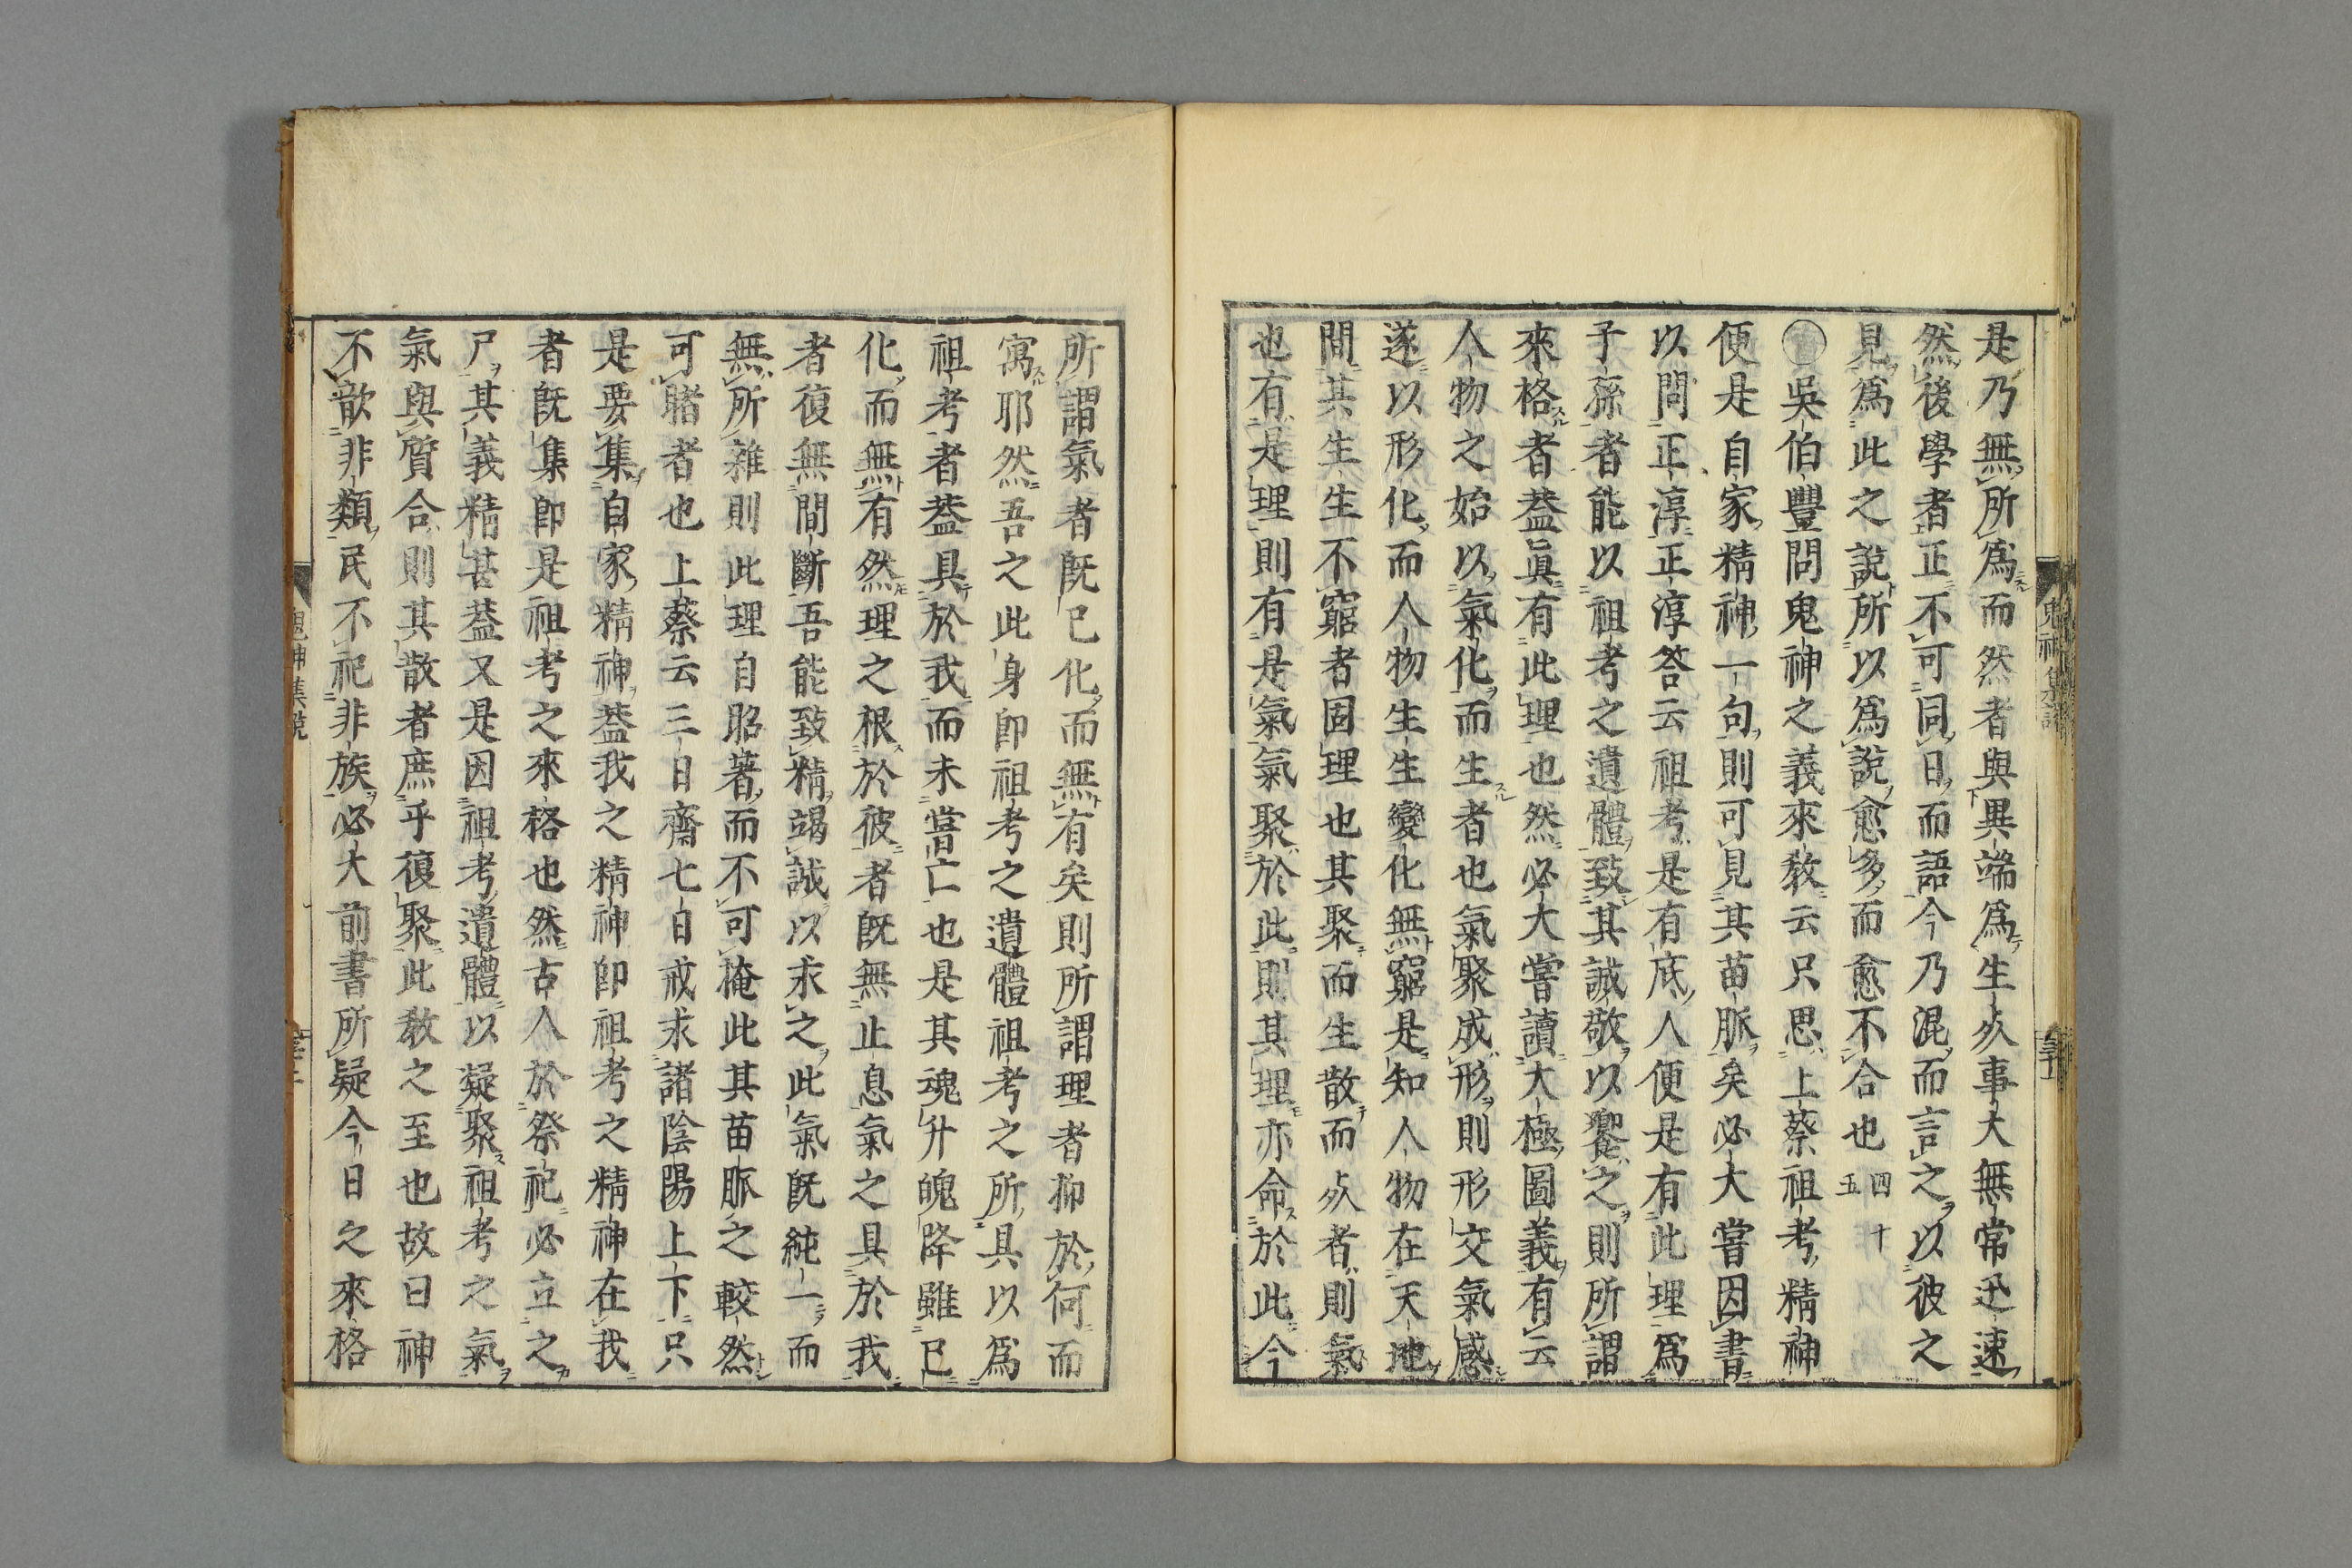 是乃無所爲而然者與異端爲生死事大無常迅速
然後學者正不可同日而語今乃混而言之以彼之
見爲此之說所以爲說愈多而愈不合也四十五
吳伯豐問鬼神之義來敎云只思上蔡祖考精神
便是自家精神一句則可見其苗脈矣必大嘗因書
以問正淳正淳答云祖考是有底人便是有此理爲
子孫者能以祖考之遺體致其誠敬以饗之則所謂
來格者葢眞有此理也然必大嘗讀大極圖義有云
人物之始以氣化而生者也氣聚成形則形交氣感
遂以形化而人物生生變化無窮是知人物在天地
間其生生不窮者固理也其聚而生散而死者則氣
也有是理則有是氣氣聚於此則其理亦命於此今
鬼神集說
所謂氣者旣已化而無有矣則所謂理者抑於何而
寓耶然吾之此身卽祖考之遺體祖考之所具以爲
祖考者葢具於我而未嘗亡也是其魂升魄降雖已
化而無有然理之根於彼者旣無止息氣之具於我
者復無間斷吾能致精竭誠以求之此氣旣純一而
無所雜則此理自昭著而不可掩此其苗脈之較然
可睹者也上蔡云三日齋七日戒求諸陰陽上下只
是要集自家精神葢我之精神卽祖考之精神在我
者旣集卽是祖考之來格也然古人於祭祀必立之
尸其義精甚葢又是因祖考遺體以凝聚祖考之氣
氣與質合則其散者庶乎復聚此敎之至也故曰神
不歆非類民不祀非族必大前書所疑今日之來格
鬼神集說